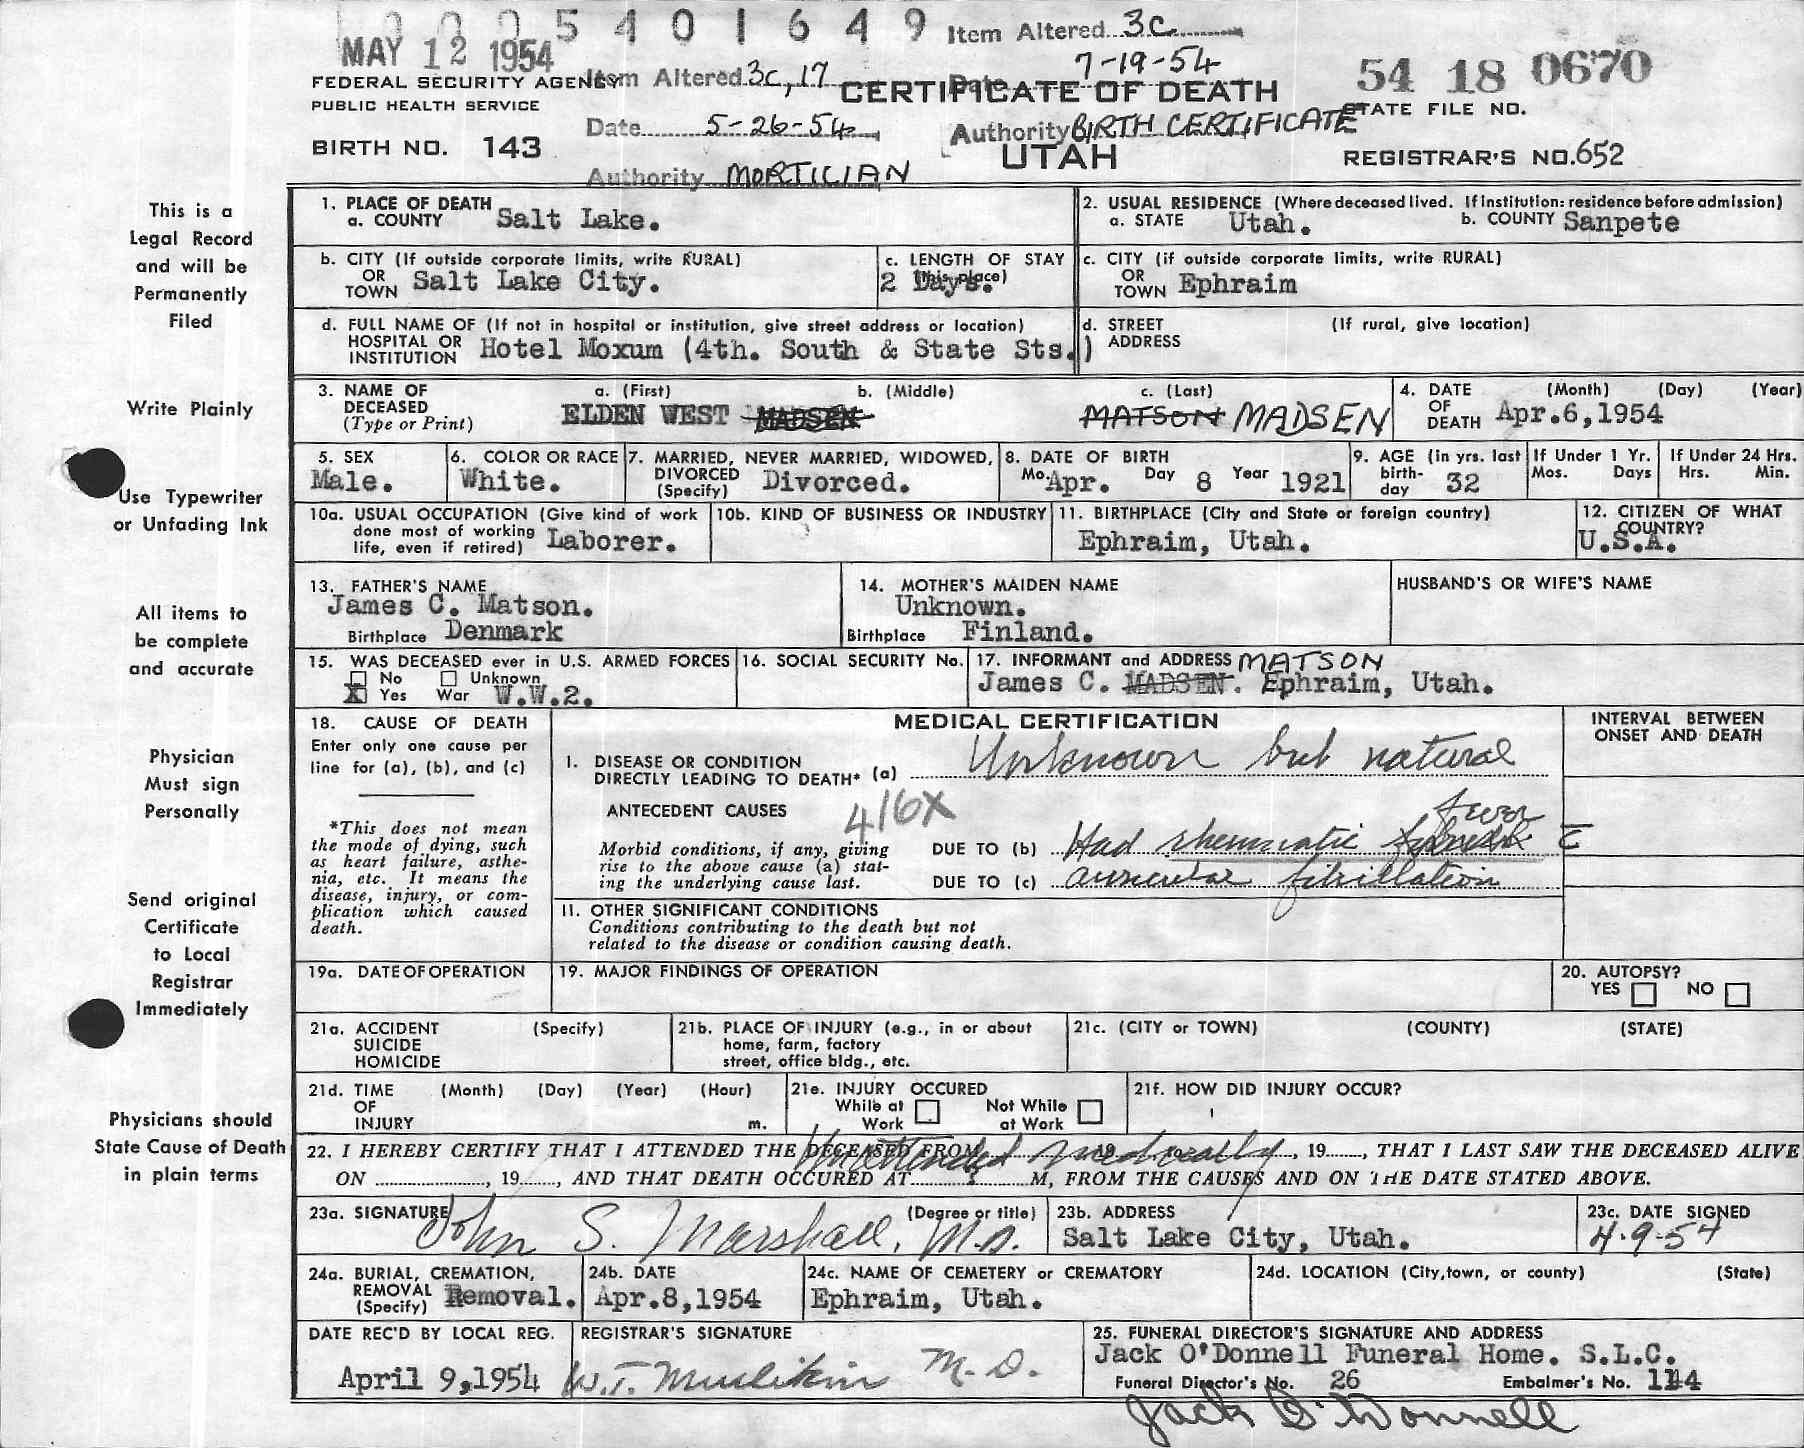 0005401649
Item Altered 3C
MAY 12 1954
7-19-54
Date
54 18 0670
FEDERAL SECURITY AGENCY
Item Altered 3c, 17
CERTIFICATE OF DEATH
STATE FILE NO.
PUBLIC HEALTH SERVICE
Date 5-26-54
Authority BIRTH CERTIFICATE
BIRTH NO. 143
UTAH
REGISTRAR'S NO. 652
Authority MORTICIAN
This is a
Legal Record
and will be
Permanently
Filed
1. PLACE OF DEATH
a. COUNTY Salt Lake.
2. USUAL RESIDENCE (Where deceased lived. If institution: residence before admission)
a. STATE Utah. b. COUNTY Sanpete
b. CITY (If outside corporate limits, write RURAL)
OR
TOWN Salt Lake City.
c. LENGTH OF STAY
(this place)
2 Days.
c. CITY (if outside corporate limits, write RURAL)
OR
TOWN Ephraim
d. FULL NAME OF (If not in hospital or institution, give street address or location)
HOSPITAL OR
INSTITUTION Hotel Moxum (4th. South & State Sts.)
d. STREET (If rural, give location)
ADDRESS
Write Plainly
3. NAME OF a. (First) b. (Middle) c. (Last)
DECEASED
(Type or Print) ELDEN WEST MADSEN MATSON MADSEN
4. DATE (Month) (Day) (Year)
OF
DEATH Apr.6,1954
Use Typewriter
or Unfading Ink
5. SEX
Male.
6. COLOR OR RACE
White.
7. MARRIED, NEVER MARRIED, WIDOWED,
DIVORCED
(Specify) Divorced.
8. DATE OF BIRTH
Mo. Apr. Day 8 Year 1921
9. AGE (in yrs. last
birth-
day 32
If Under 1 Yr.
Mos. Days
If Under 24 Hrs.
Hrs. Min.
10a. USUAL OCCUPATION (Give kind of work
done most of working
life, even if retired) Laborer.
10b. KIND OF BUSINESS OR INDUSTRY
11. BIRTHPLACE (City and State or foreign country)
Ephraim, Utah.
12. CITIZEN OF WHAT
COUNTRY?
U.S.A.
All items to
be complete
and accurate
13. FATHER'S NAME
James C. Matson.
Birthplace Denmark
14. MOTHER'S MAIDEN NAME
Unknown.
Birthplace Finland.
HUSBAND'S OR WIFE'S NAME
15. WAS DECEASED ever in U.S. ARMED FORCES
No Unknown
X Yes War W.W.2.
16. SOCIAL SECURITY No.
17. INFORMANT and ADDRESS MATSON
James C. MADSEN. Ephraim, Utah.
Physician
Must sign
Personally
18. CAUSE OF DEATH
Enter only one cause per
line for (a), (b), and (c)
*This does not mean
the mode of dying, such
as heart failure, asthe-
nia, etc. It means the
disease, injury, or com-
plication which caused
death.
MEDICAL CERTIFICATION
INTERVAL BETWEEN
ONSET AND DEATH
I. DISEASE OR CONDITION
DIRECTLY LEADING TO DEATH* (a) Unknown but natural
ANTECEDENT CAUSES
416X
fever
Morbid conditions, if any, giving
rise to the above cause (a) stat-
ing the underlying cause last.
DUE TO (b) Had rheumatic c̄
DUE TO (c) auricular fibrillation
II. OTHER SIGNIFICANT CONDITIONS
Conditions contributing to the death but not
related to the disease or condition causing death.
Send original
Certificate
to Local
Registrar
Immediately
19a. DATE OF OPERATION
19. MAJOR FINDINGS OF OPERATION
20. AUTOPSY?
YES NO
21a. ACCIDENT (Specify)
SUICIDE
HOMICIDE
21b. PLACE OF INJURY (e.g., in or about
home, farm, factory
street, office bldg., etc.
21c. (CITY or TOWN) (COUNTY) (STATE)
21d. TIME (Month) (Day) (Year) (Hour)
OF
INJURY m.
21e. INJURY OCCURED
While at Not While
Work at Work
21f. HOW DID INJURY OCCUR?
Physicians should
State Cause of Death
in plain terms
22. I HEREBY CERTIFY THAT I ATTENDED THE DECEASED FROM Unattended medically 19, 19, THAT I LAST SAW THE DECEASED ALIVE
ON , 19, AND THAT DEATH OCCURED AT M, FROM THE CAUSES AND ON THE DATE STATED ABOVE.
23a. SIGNATURE (Degree or title)
John S. Marshall, M.D.
23b. ADDRESS
Salt Lake City, Utah.
23c. DATE SIGNED
4-9-54
24a. BURIAL, CREMATION,
REMOVAL
(Specify) Removal.
24b. DATE
Apr.8,1954
24c. NAME OF CEMETERY or CREMATORY
Ephraim, Utah.
24d. LOCATION (City,town, or county) (State)
DATE REC'D BY LOCAL REG.
April 9,1954
REGISTRAR'S SIGNATURE
W.T. M.D.
25. FUNERAL DIRECTOR'S SIGNATURE AND ADDRESS
Jack O'Donnell Funeral Home. S.L.C.
Funeral Director's No. 26 Embalmer's No. 114
Jack O'Donnell